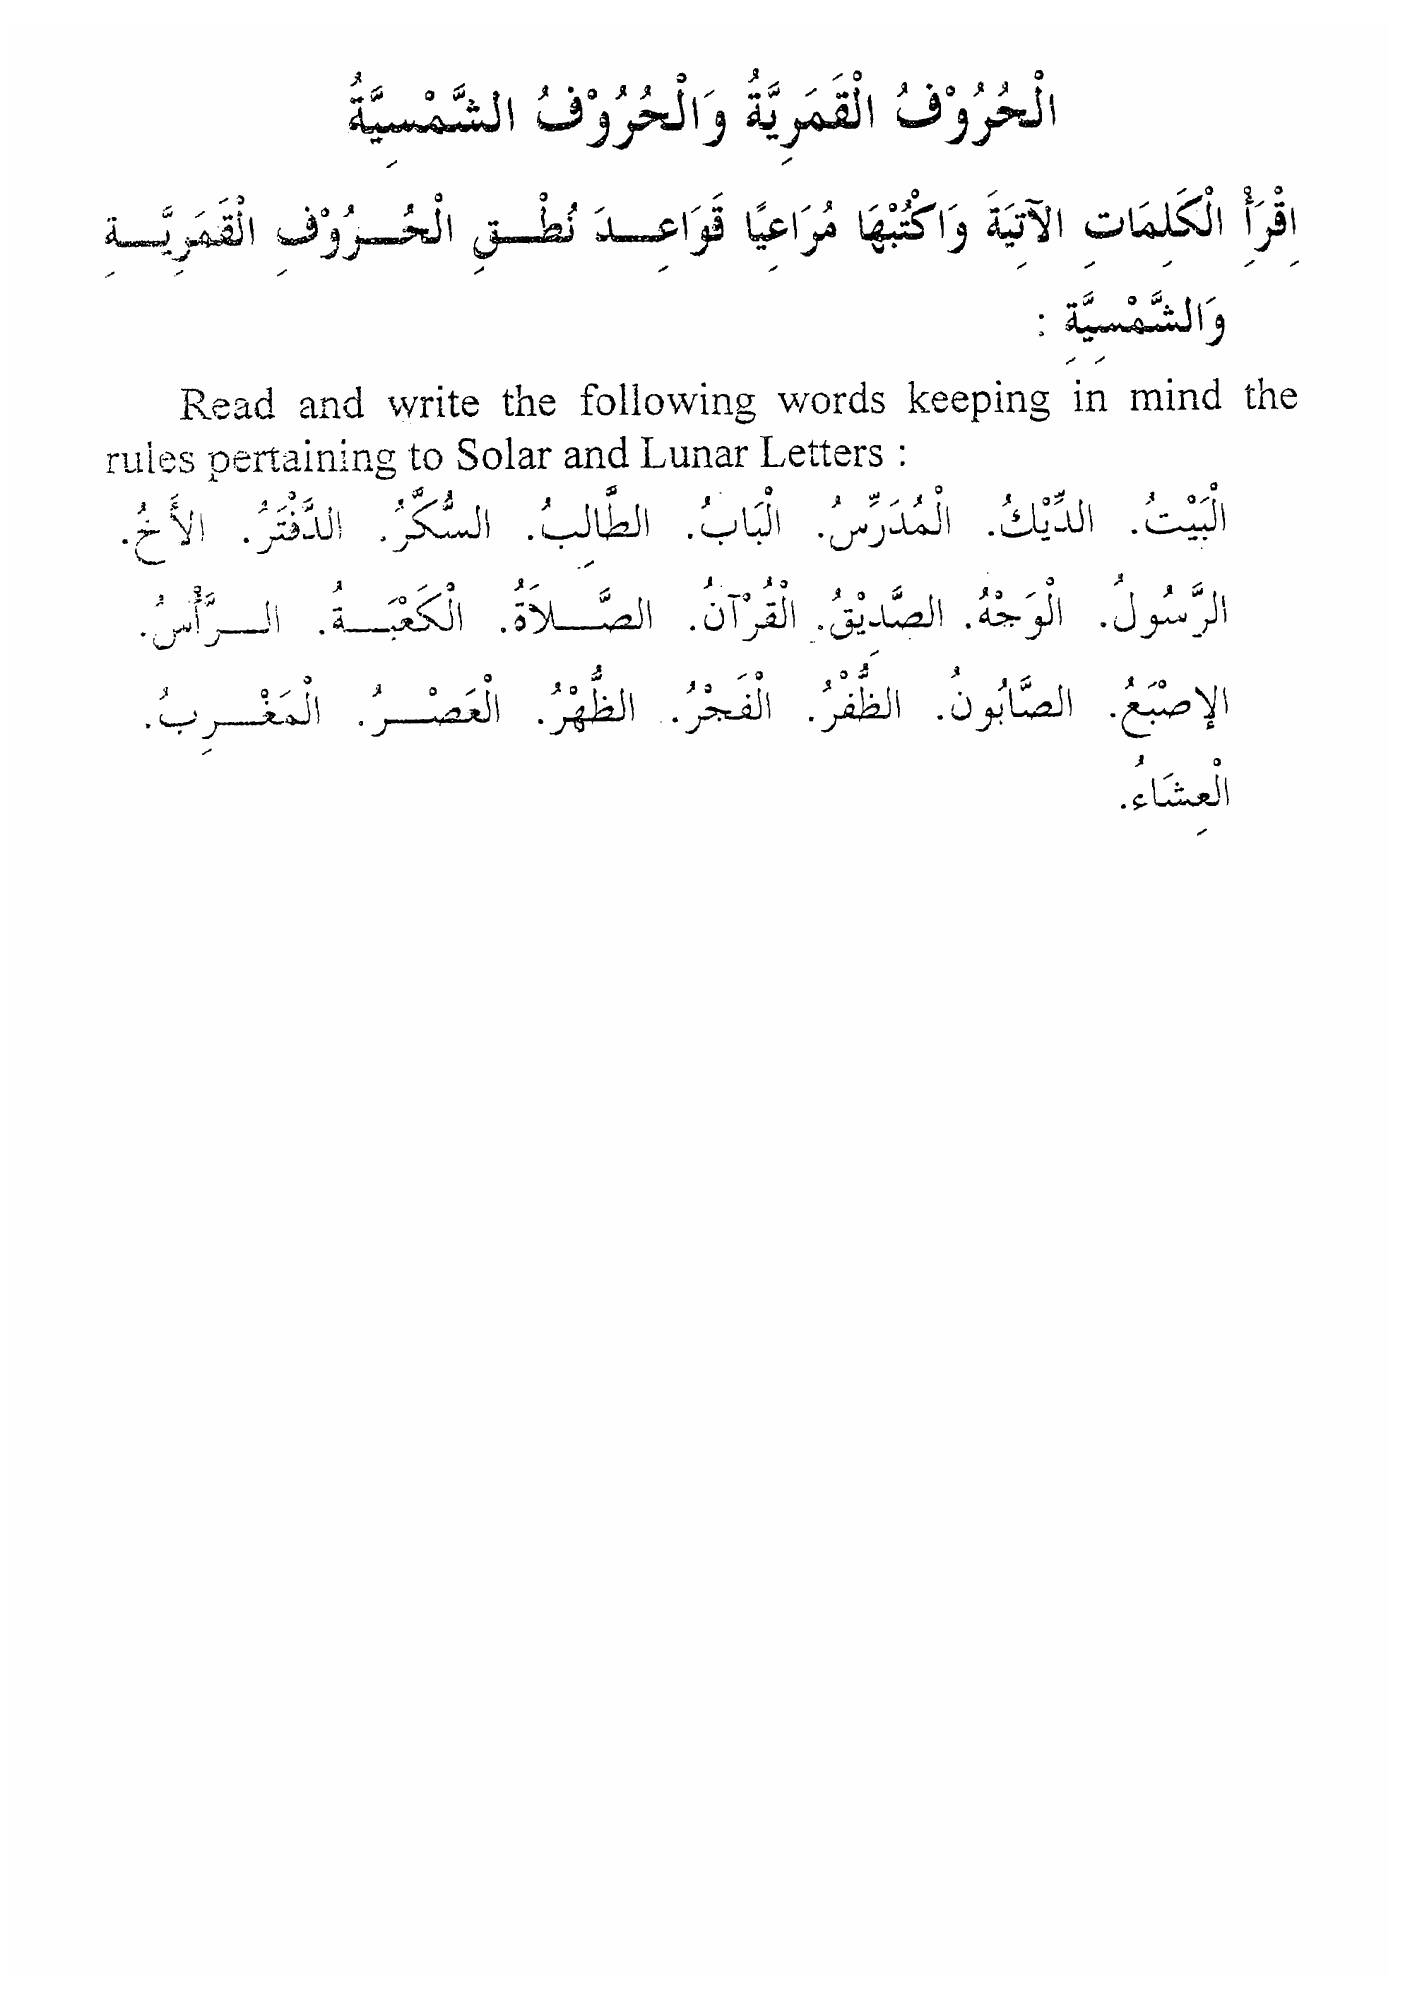 الْحُرُوْفُ الْقَمَرِيَّةُ وَالْحُرُوْفُ الشَّمْسِيَّةُ
اِقْرَأْ الْكَلِمَاتِ الآتِيَةَ وَاكْتُبْهَا مُرَاعِيًا قَوَاعِدَ نُطْقِ الْحُرُوْفِ الْقَمَرِيَّةِ
وَالشَّمْسِيَّةِ :
Read and write the following words keeping in mind the
rules pertaining to Solar and Lunar Letters :
الْبَيْتُ. الدِّيْكُ. الْمُدَرِّسُ. الْبَابُ. الطَّالِبُ. السُّكَّرُ. الدَّفْتَرُ. الأَخُ.
الرَّسُولُ. الْوَجْهُ. الصَّدِيْقُ. الْقُرْآنُ. الصَّلاَةُ. الْكَعْبَةُ. الرَّأْسُ.
الإِصْبَعُ. الصَّابُونُ. الظُّفْرُ. الْفَجْرُ. الظُّهْرُ. الْعَصْرُ. الْمَغْرِبُ.
الْعِشَاءُ.